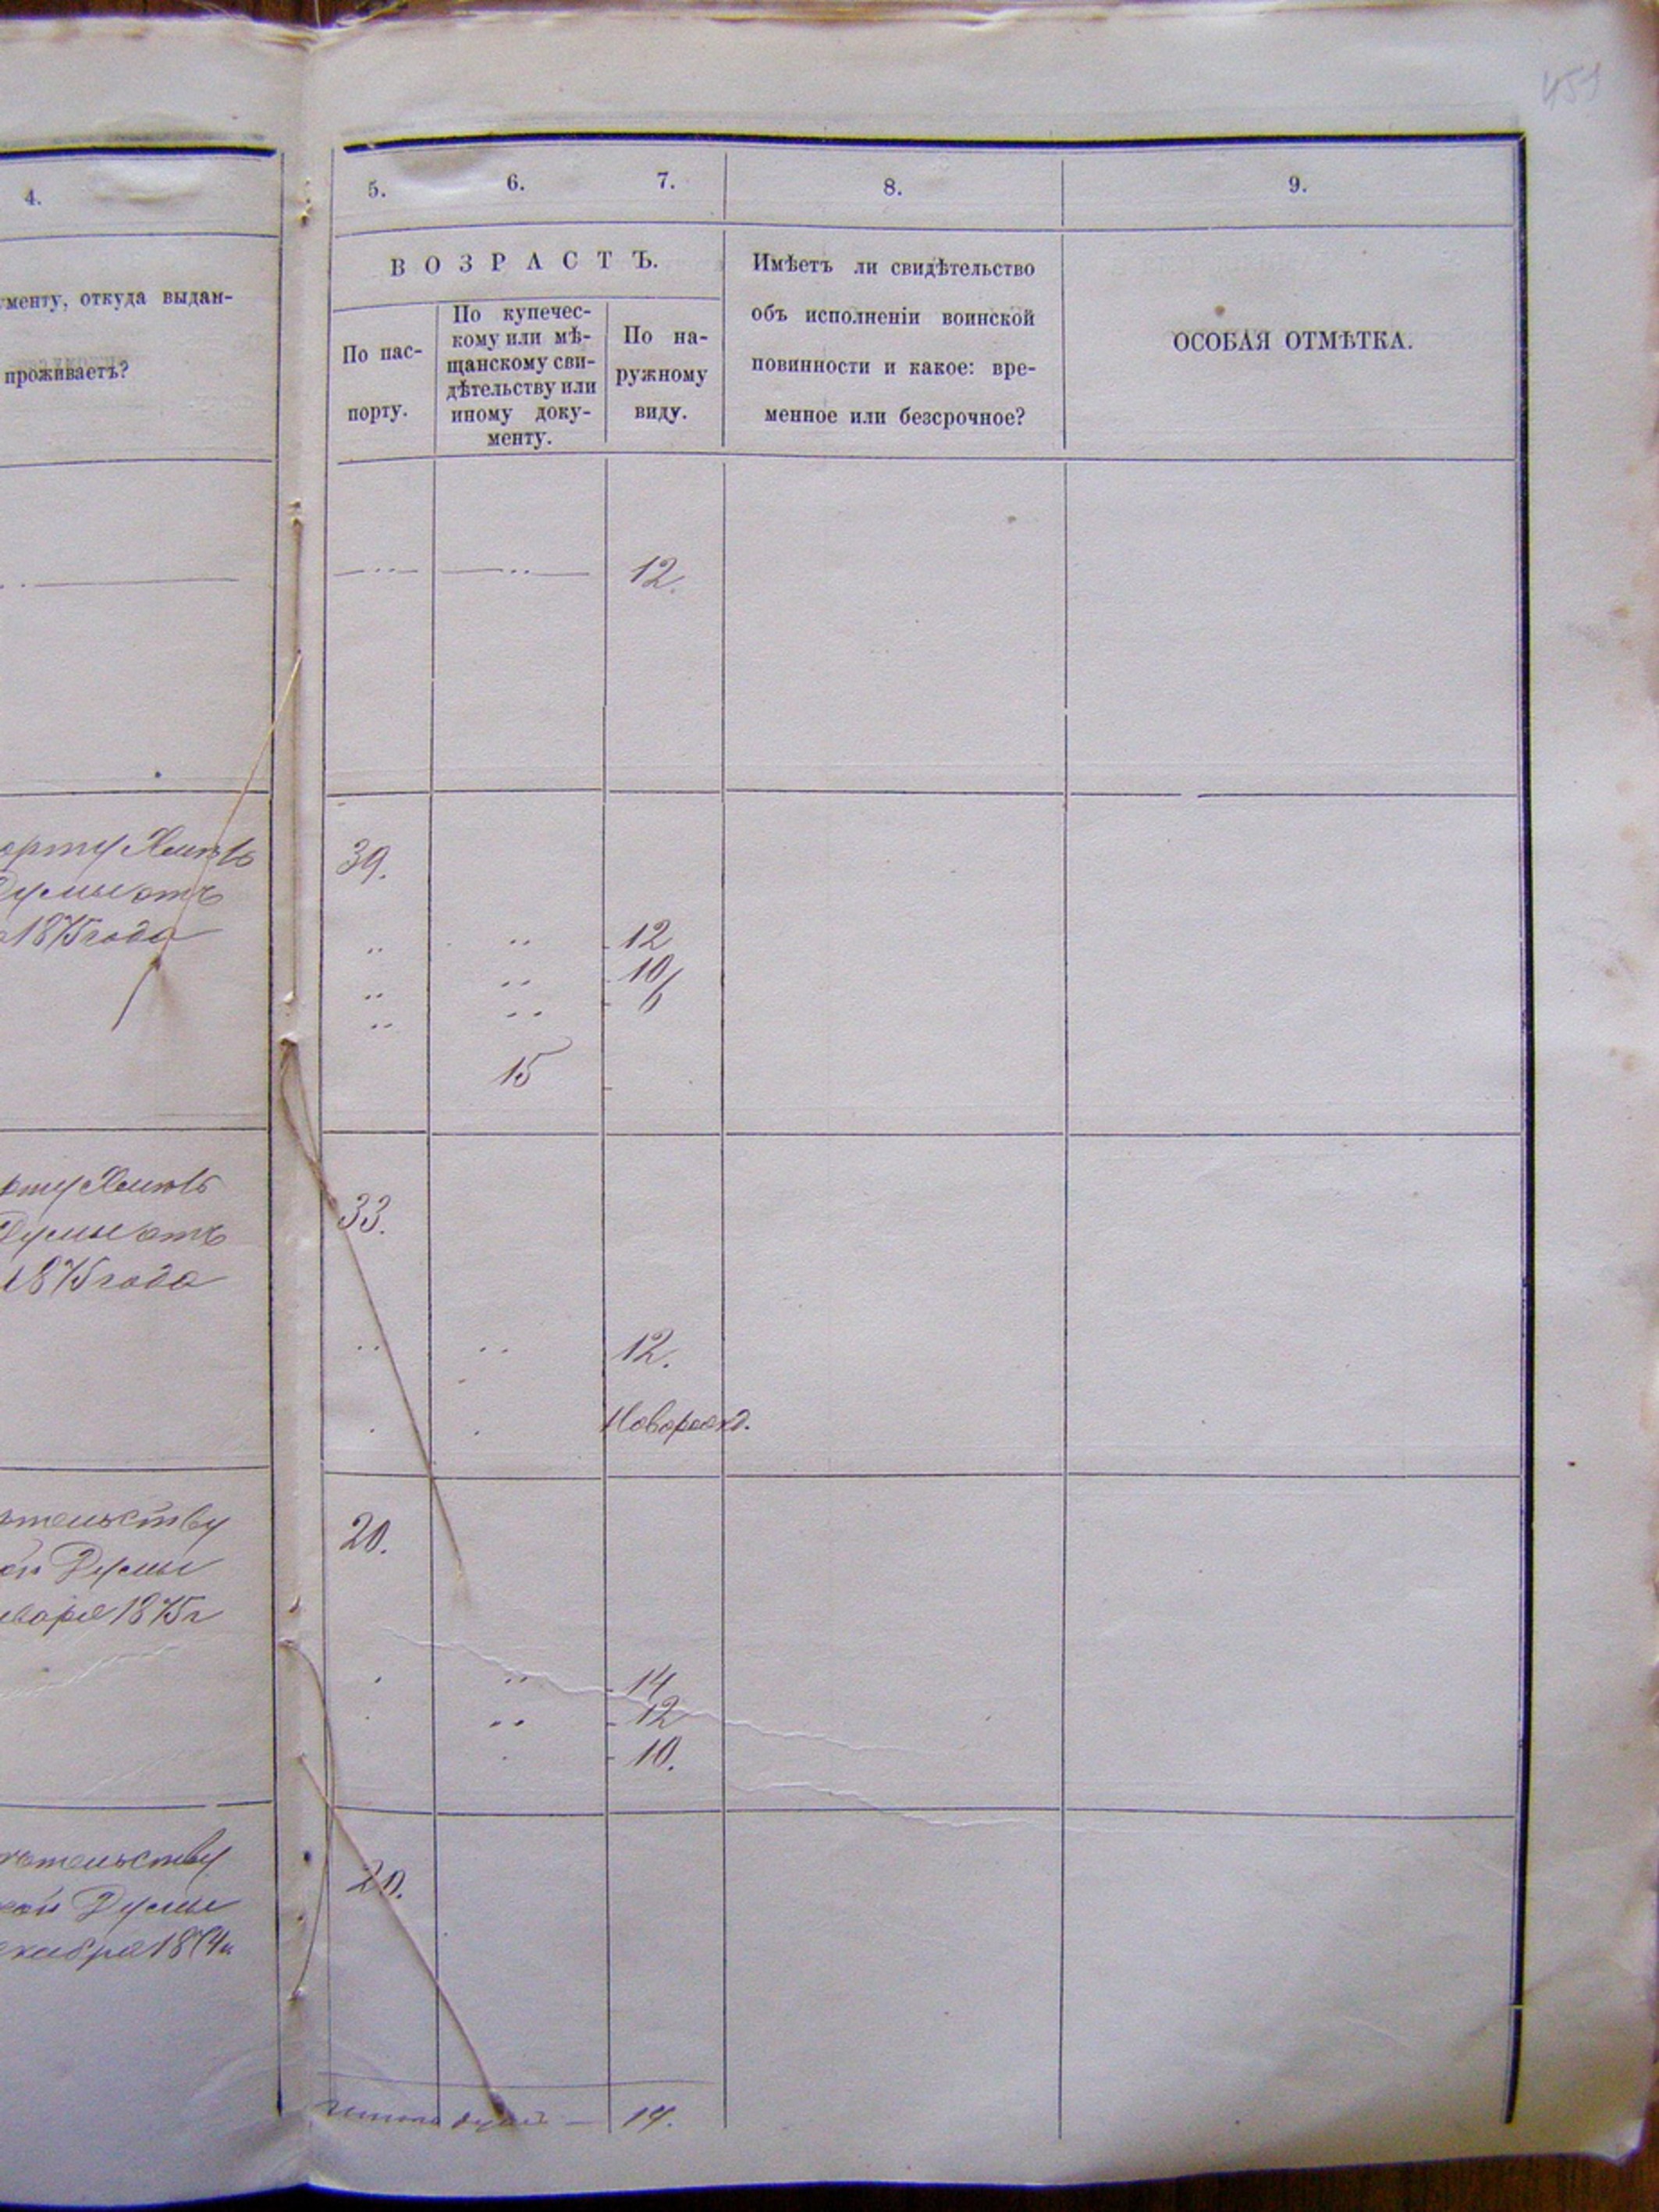 451
4.
5.
6.
7.
8.
9.
ументу, откуда выдан-
проживаетъ?
ВОЗРАСТЪ.
По пас-
порту.
По купечес-
кому или мѣ-
щанскому сви-
дѣтельству или
иному доку-
менту.
По на-
ружному
виду.
Имѣетъ ли свидѣтельство
объ исполненіи воинской
повинности и какое: вре-
менное или безсрочное?
ОСОБАЯ ОТМѢТКА.
12.
39.
Думы отъ
1875 года
12
10
6
15
33.
Думы отъ
1875 года
12.
Новорожд.
ѣтельству
20.
Думы
нваря 1875 г
14
12
10.
ѣтельству
20.
Думы
екабря 1874 г
14.